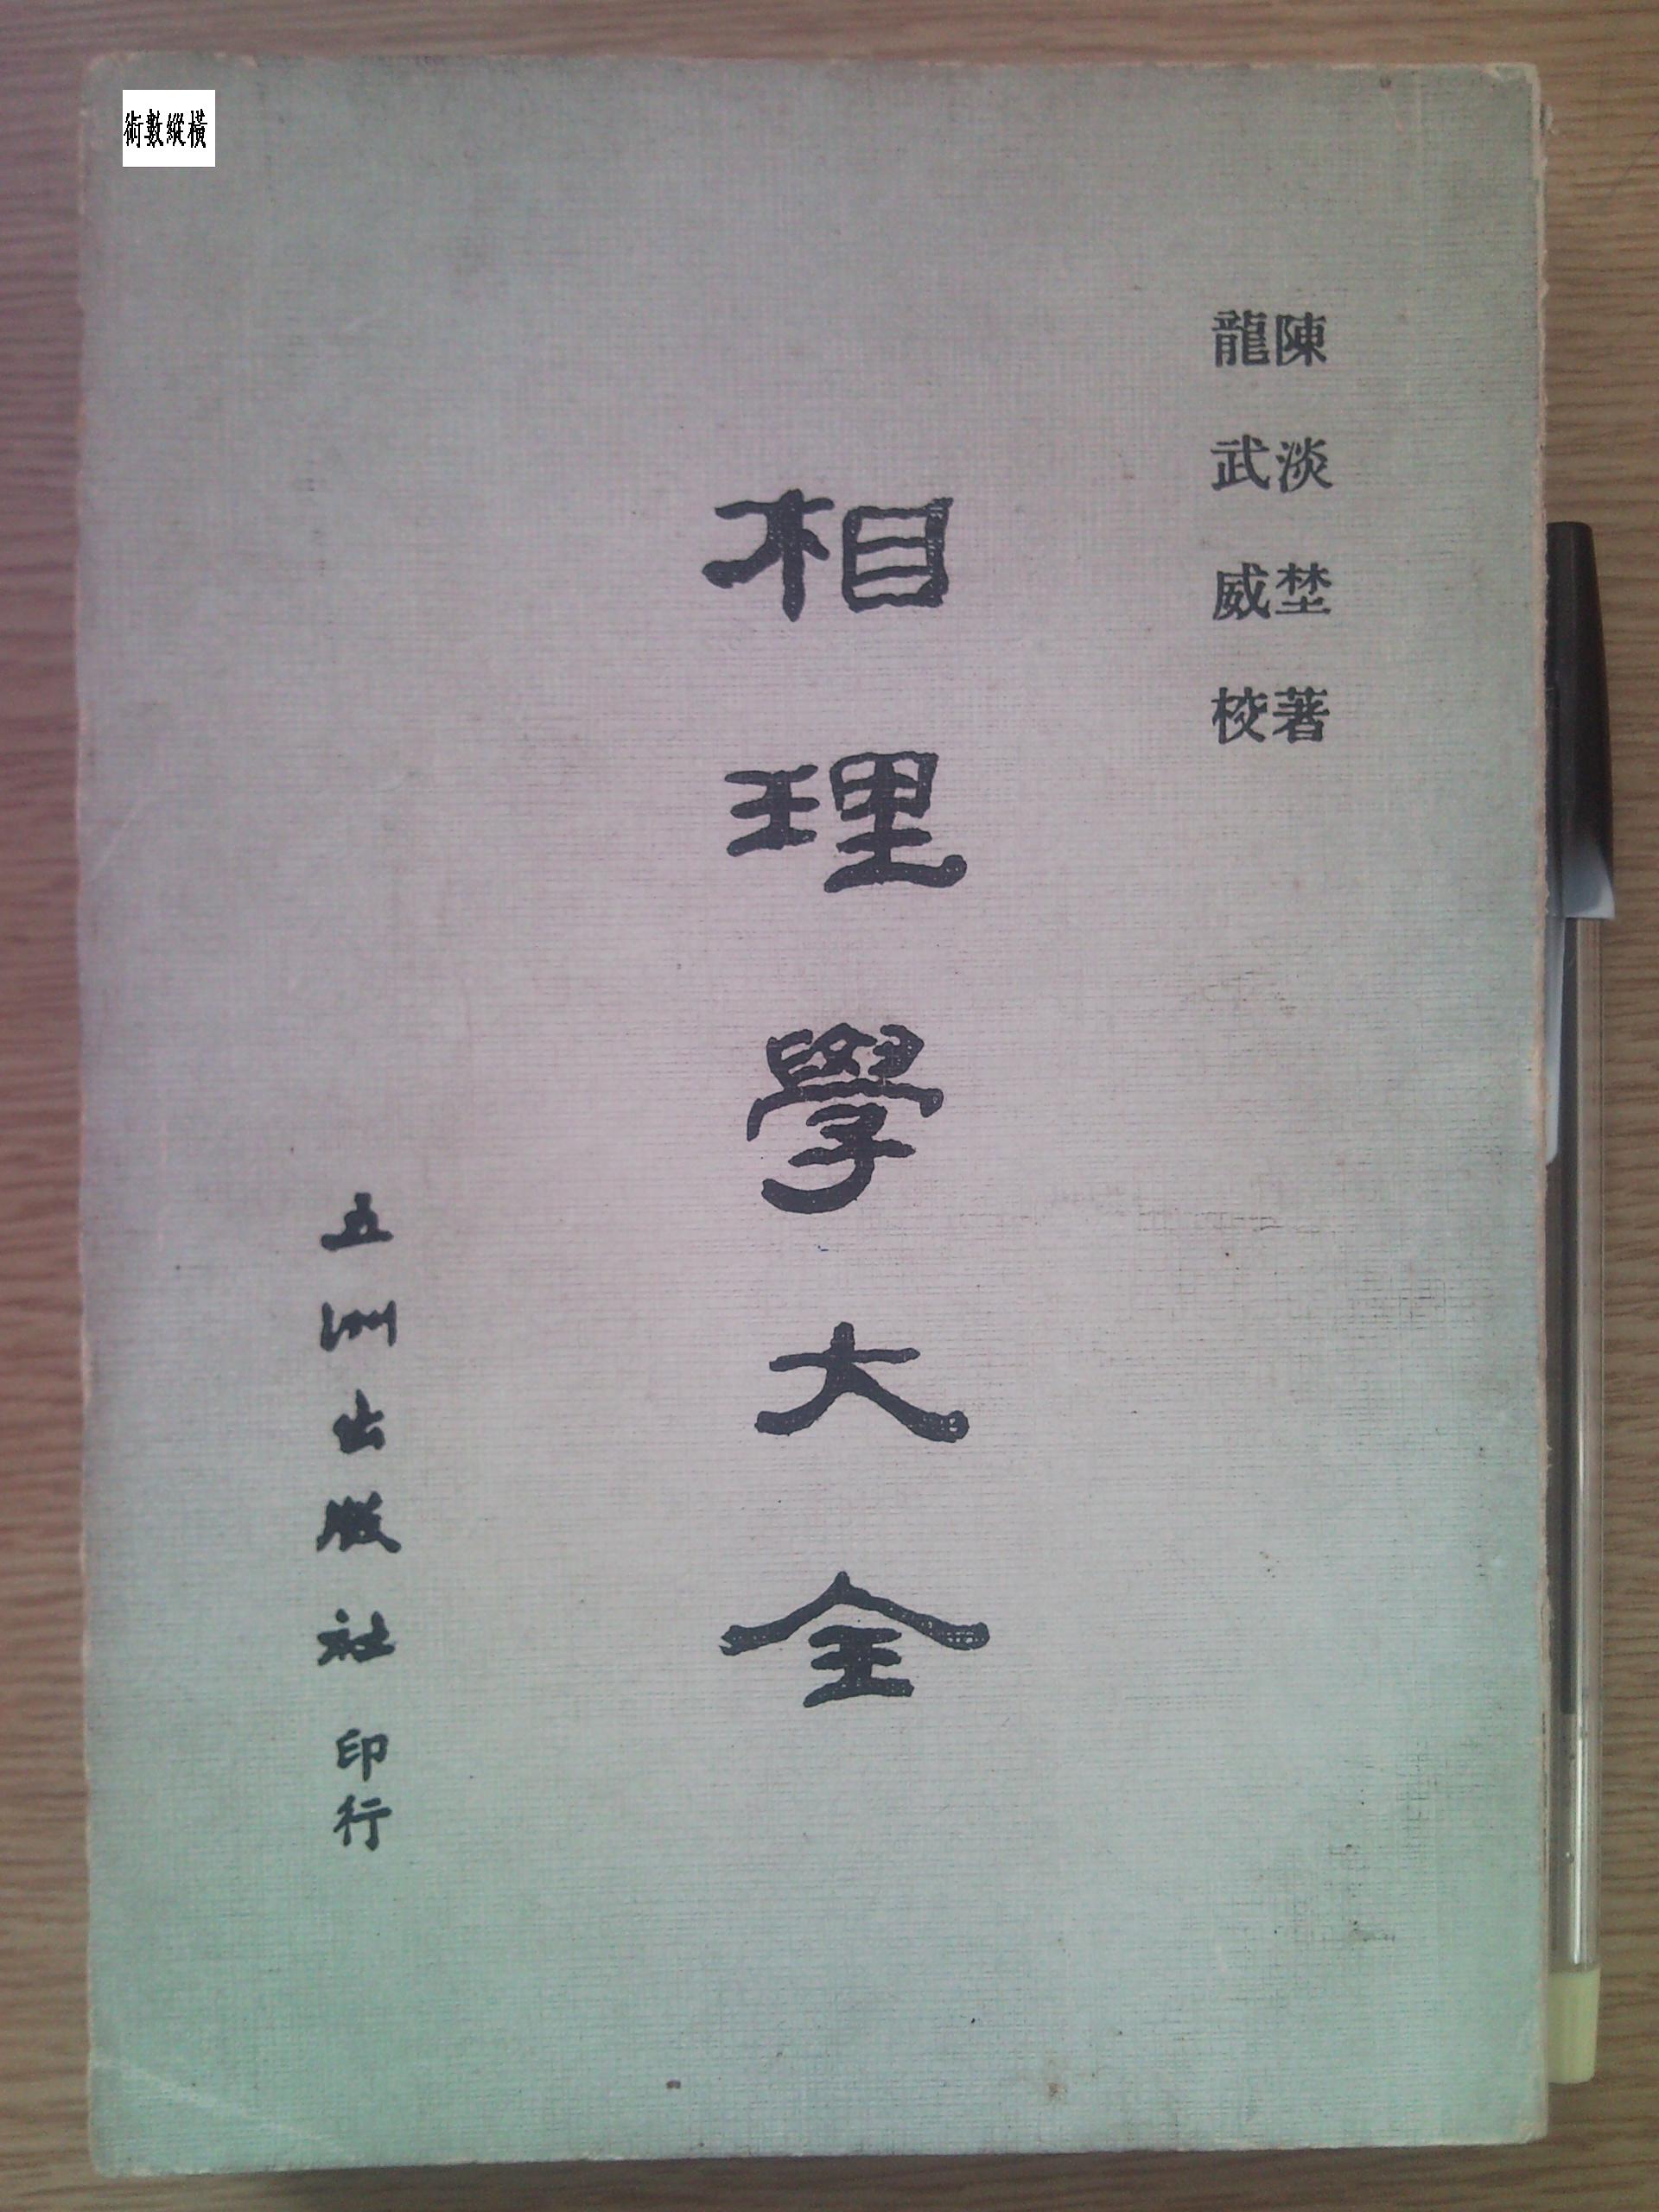 術數縱橫
陳淡埜著
龍武威校
相理學大全
五洲出版社印行